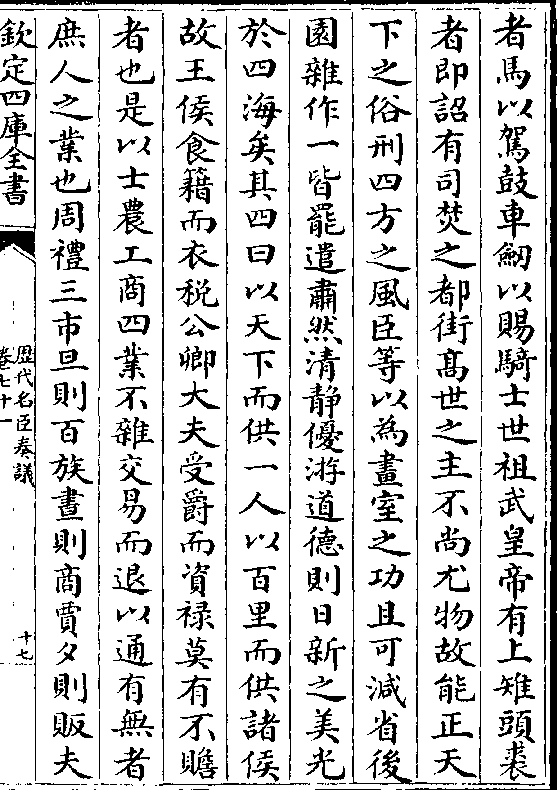 者馬以駕鼓車劒以賜騎士世祖武皇帝有上雉頭裘
者即詔有司焚之都街髙世之主不尚尤物故能正天
下之俗刑四方之風臣等以為畫室之功且可減省後
園雜作一皆罷遣肅然清静優游道德則日新之美光
於四海矣其四曰以天下而供一人以百里而供諸侯
故王侯食籍而衣税公卿大夫受爵而資禄莫有不贍
者也是以士農工商四業不雜交易而退以通有無者
庶人之業也周禮三市旦則百族晝則商賈夕則販夫
欽定四庫全書
歴代名臣奏議
卷七十一
十七